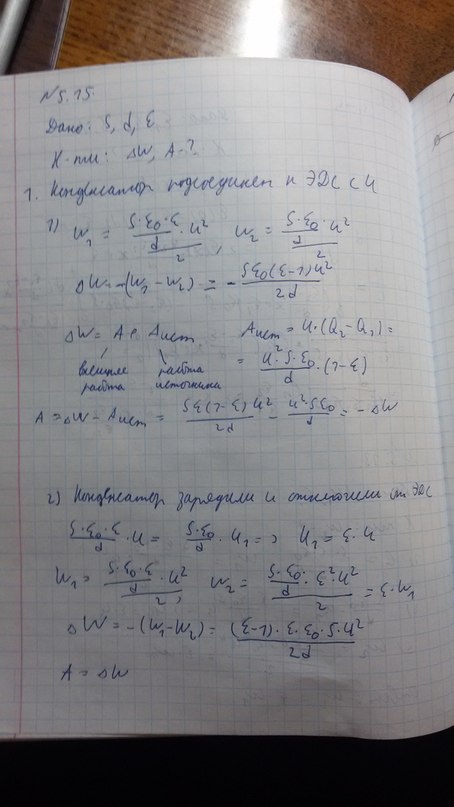 N5.15
Дано: S, d, ε
Х-ти: ΔW, A-?
1. Конденсатор подсоединен к ЭДС с U
1) W₁ = (S·ε₀·ε/d · U²)/2, W₂ = (S·ε₀/d · U²)/2
ΔW = -(W₁-W₂) = - Sε₀(ε-1)U²/2d
ΔW = A + Aист Aист = U·(Q₂-Q₁) =
внешние работа работа источника = U²·S·ε₀/d · (1-ε)
A = ΔW - Aист = = - ΔW
2) Конденсатор зарядили и отключили от ЭДС
S·ε₀·ε/d · U = S·ε₀/d · U₁ => U₁ = ε·U
W₁ = (S·ε₀·ε/d · U²)/2, W₂ = (S·ε₀/d · ε²·U²)/2 = ε·W₁
ΔW = -(W₁-W₂) = ·ε·ε₀·S·U²/2d
A = ΔW